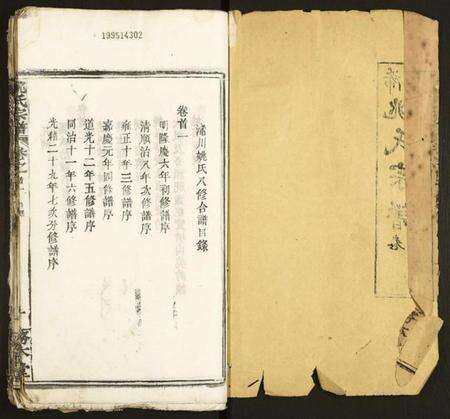 199514302
浦川姚氏八修合譜目錄
卷首一
明隆慶六年初修譜序
清順治八年次修譜序
雍正十年三修譜序
嘉慶元年四修譜序
道光十二年五修譜序
同治十一年六修譜序
光緒二十九年七次分修譜序
姚氏宗譜